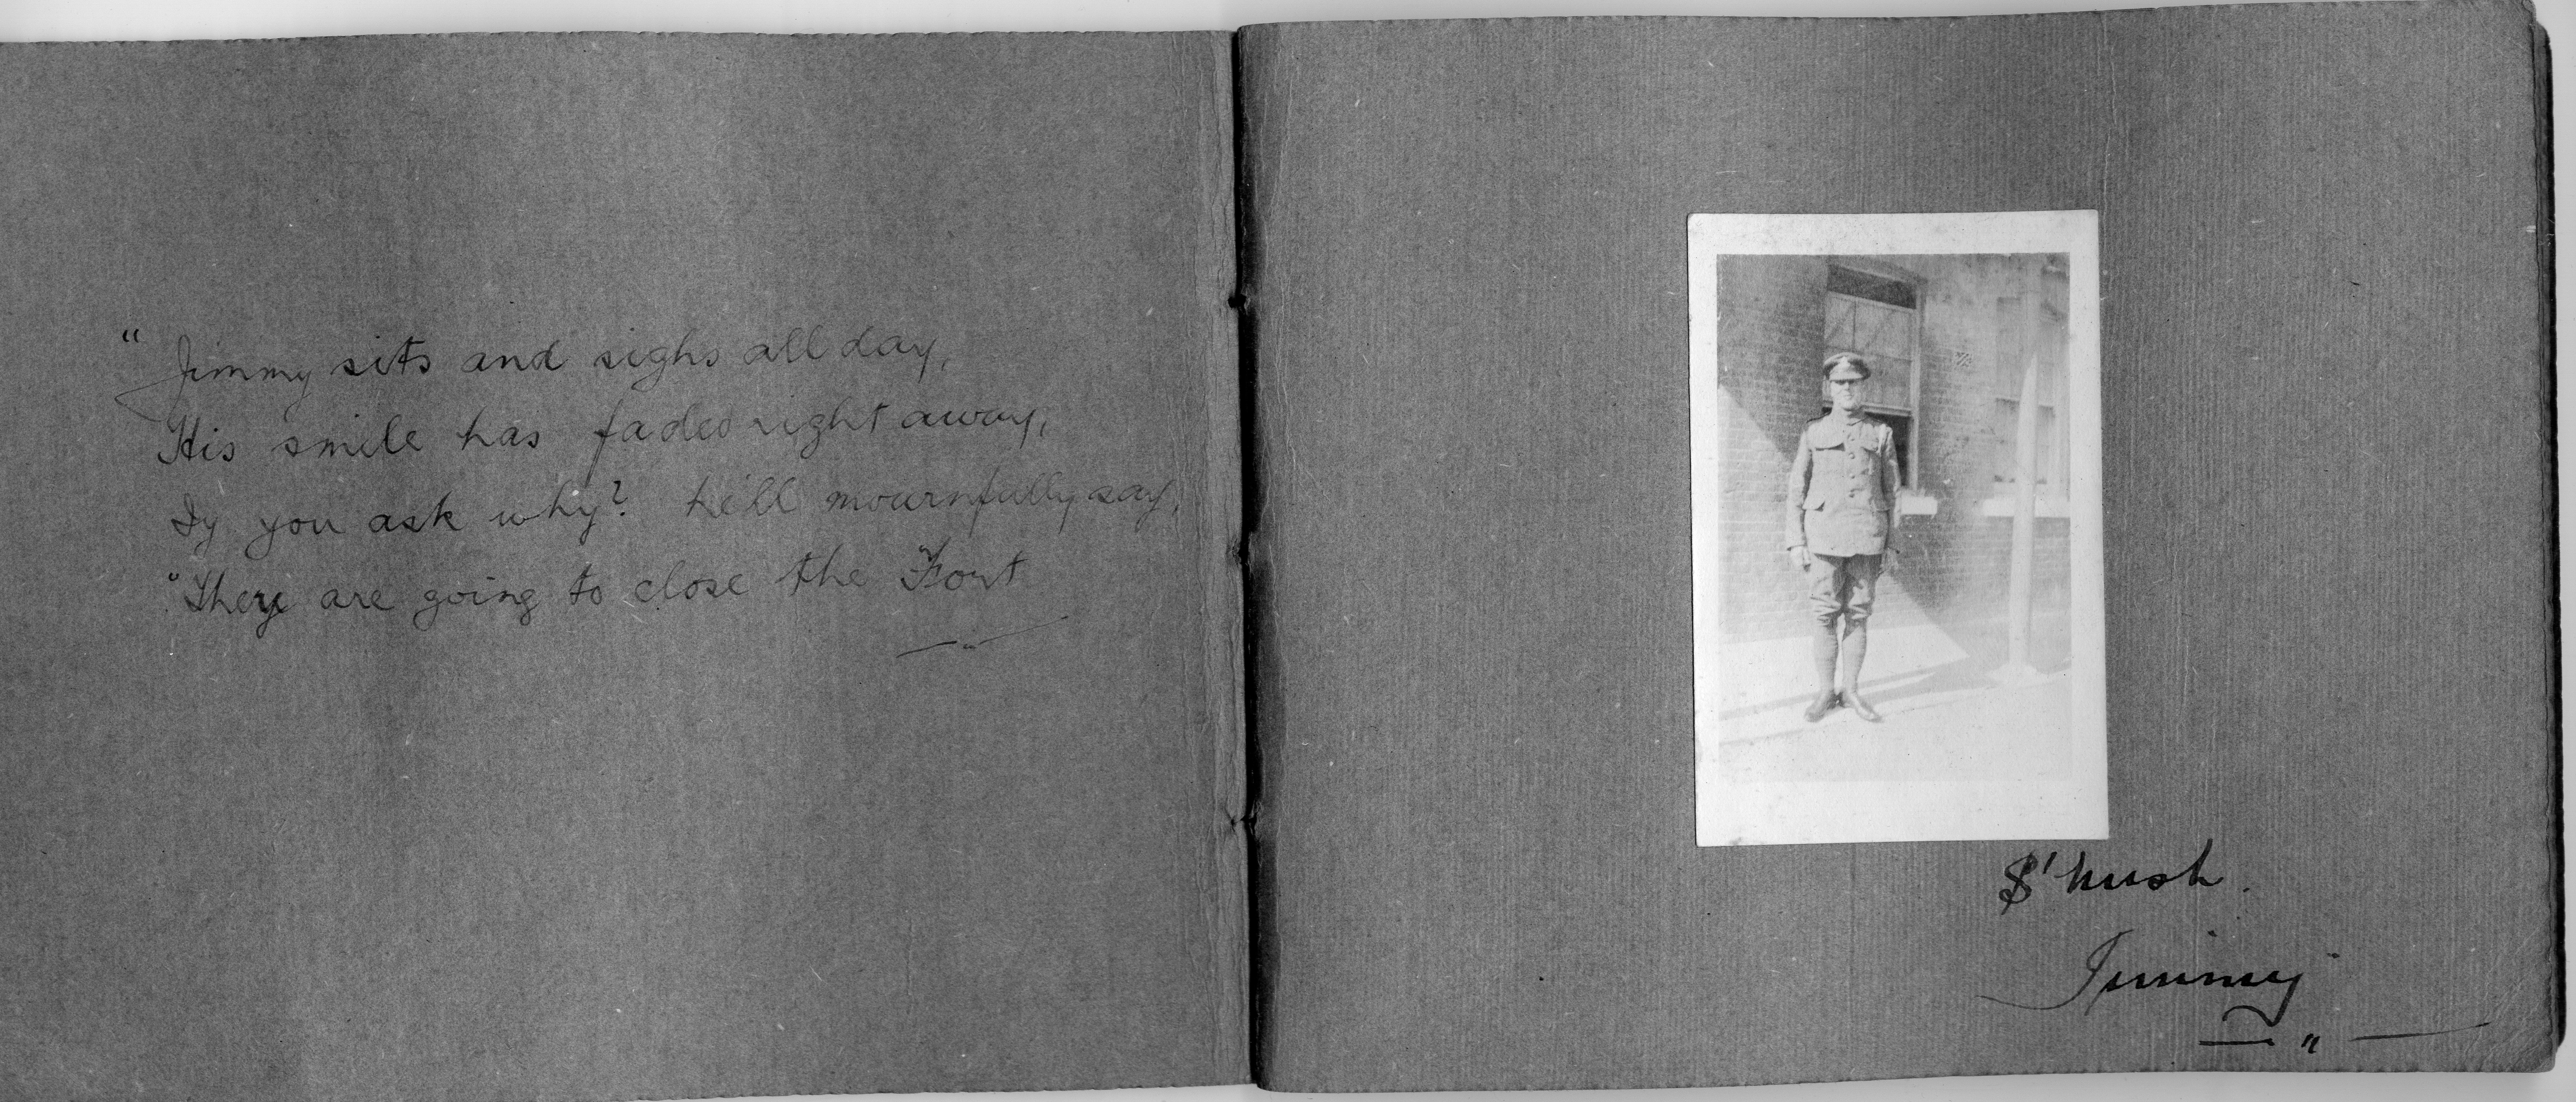 " Jimmy sits and sighs all day,
His smile has faded right away,
If you ask why? he'll mournfully say,
"They are going to close the Fort
S'hush.
Jimmy